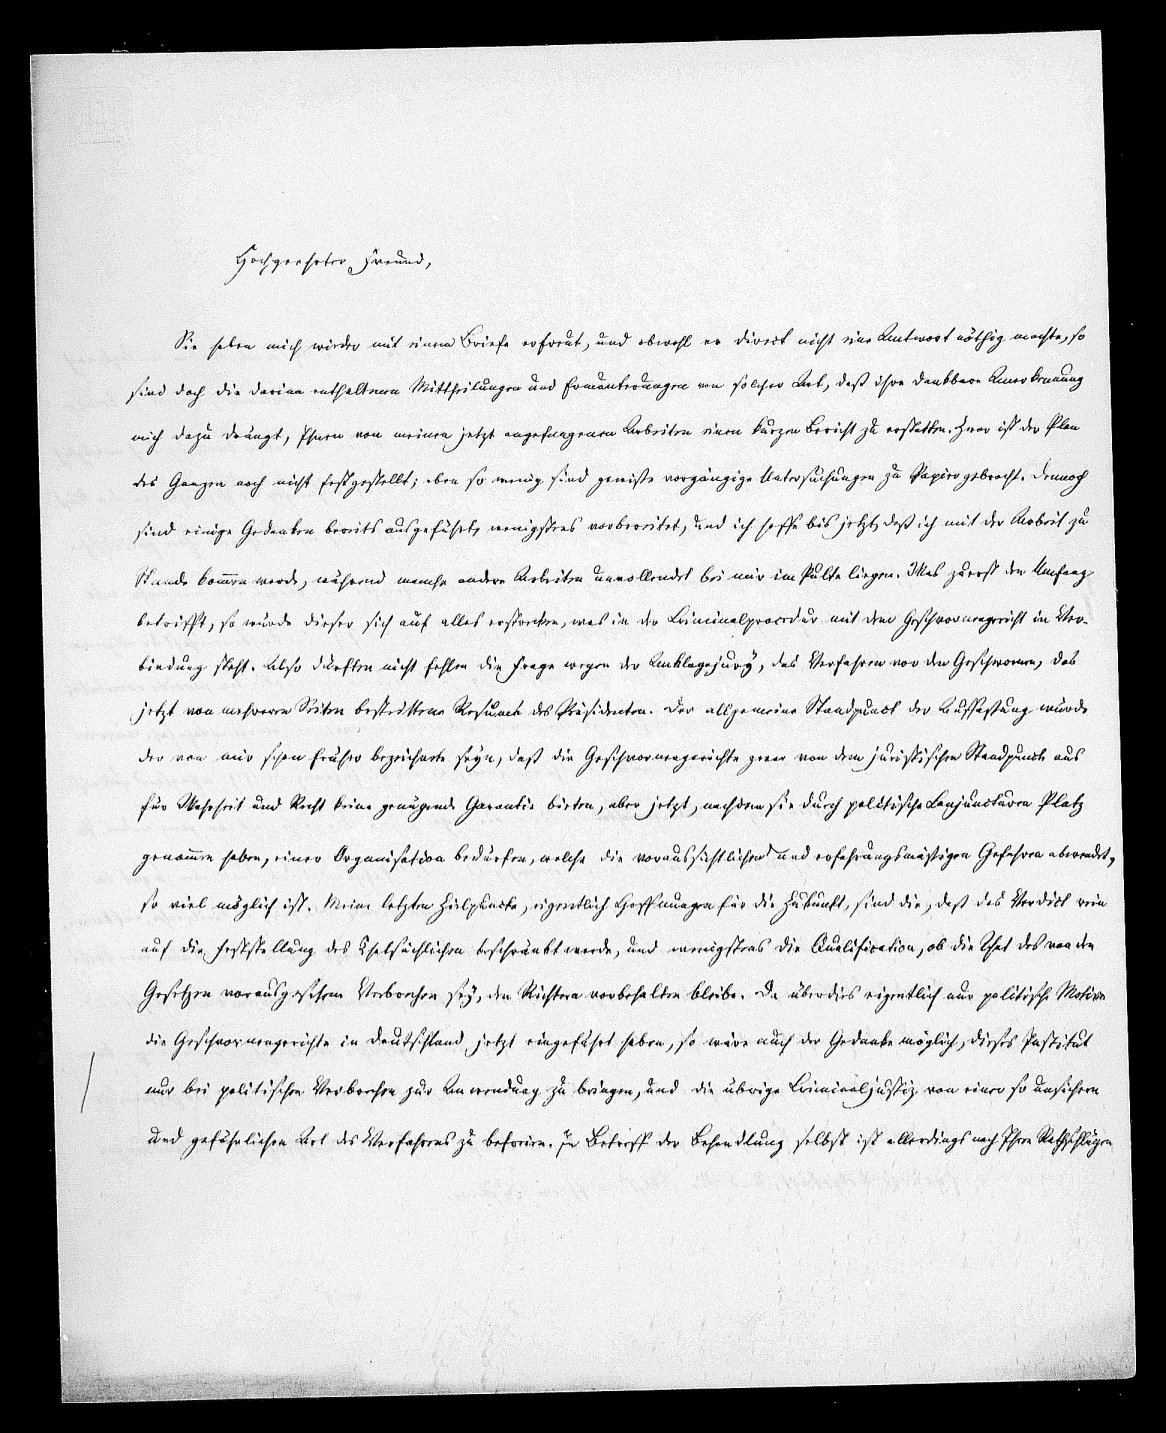 Hochgeehrter Freund,
Sie haben mich wieder mit einem Briefe erfreut, und obwohl er direct nicht eine Antwort nöthig machte, so
sind doch die darinn enthaltenen Mittheilungen und Ermunterungen von solcher Art, daß ihre dankbare Anerkennung
mich dazu drängt, Ihnen von meinen jetzt angefangenen Arbeiten einen kurzen Bericht zu erstatten. Zwar ist der Plan
des Ganzen noch nicht festgestellt; eben so wenig sind gewisse vorgängige Untersuchungen zu Papier gebracht. Dennoch
sind einige Gedanken bereits ausgeführt, wenigstens vorbereitet, und ich hoffe bis jetzt, daß ich mit der Arbeit zu
Stande kommen werde, während manche andere Arbeiten unvollendet bei mir im Pulte liegen. Was zuerst den Umfang
betrifft, so würde dieser sich auf alles erstrecken, was in der Criminalprocedur mit dem Geschwornengericht in Ver-
bindung steht. Also dürften nicht fehlen die Frage wegen der Anklagejury, das Verfahren vor den Geschwornen, das
jetzt von mehreren Seiten bestrittene Resumé des Präsidenten. Der allgemeine Standpunct der Auffassung würde
der von mir schon früher bezeichnete seyn, daß die Geschwornengerichte zwar von dem juristischen Standpuncte aus
für Wahrheit und Recht keine genügende Garantie bieten, aber jetzt, nachdem sie durch politische Conjuncturen Platz
genommen haben, einer Organisation bedürfen, welche die voraussichtlichen und erfahrungsmässigen Gefahren abwendet,
so viel möglich ist. Meine letzten Zielpuncte, eigentlich Hoffnungen für die Zukunft, sind die, daß das Verdict rein
auf die Feststellung des Thatsächlichen beschränkt werde, und wenigstens die Qualification, ob die That das von den
Gesetzen vorausgesehene Verbrechen sey, den Richtern vorbehalten bleibe. Da überdies eigentlich nur politische Motive
die Geschwornengerichte in Deutschland jetzt eingeführt haben, so wäre auch der Gedanke möglich, dieses Institut
nur bei politischen Verbrechen zur Anwendung zu bringen, und die übrige Criminaljustiz von einer so unsichern
und gefährlichen Art des Verfahrens zu befreien. In Betreff der Behandlung selbst ist allerdings nach Ihren Rathschlägen